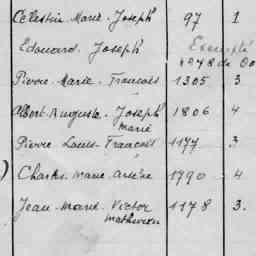 Célestin Marie Joseph 97 1
Edouard Joseph Exempté
Pierre Marie Francois 1305 3
Albert Auguste Joseph 1806 4
marie
Pierre Louis Francois 1177 3
Charles marie arsène 1790 4
Jean marie Victor 1178 3.
mathurin